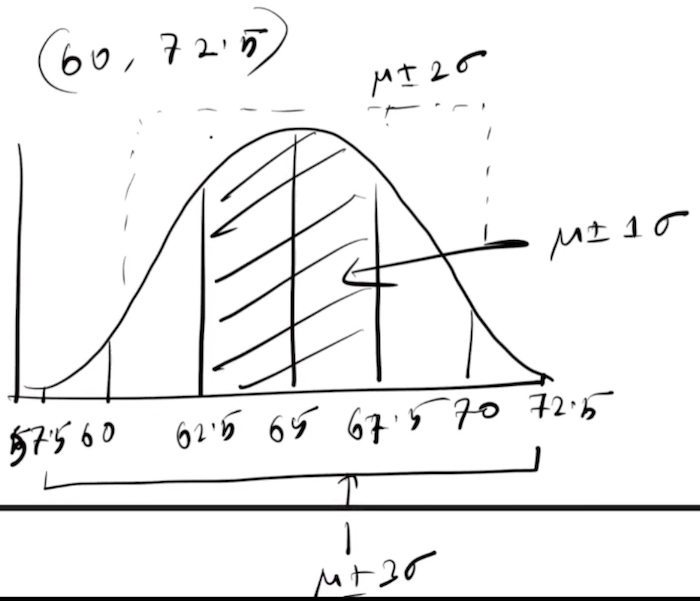 (60, 72.5)
μ ± 2σ
μ ± 1σ
57.5 60 62.5 65 67.5 70 72.5
μ ± 3σ